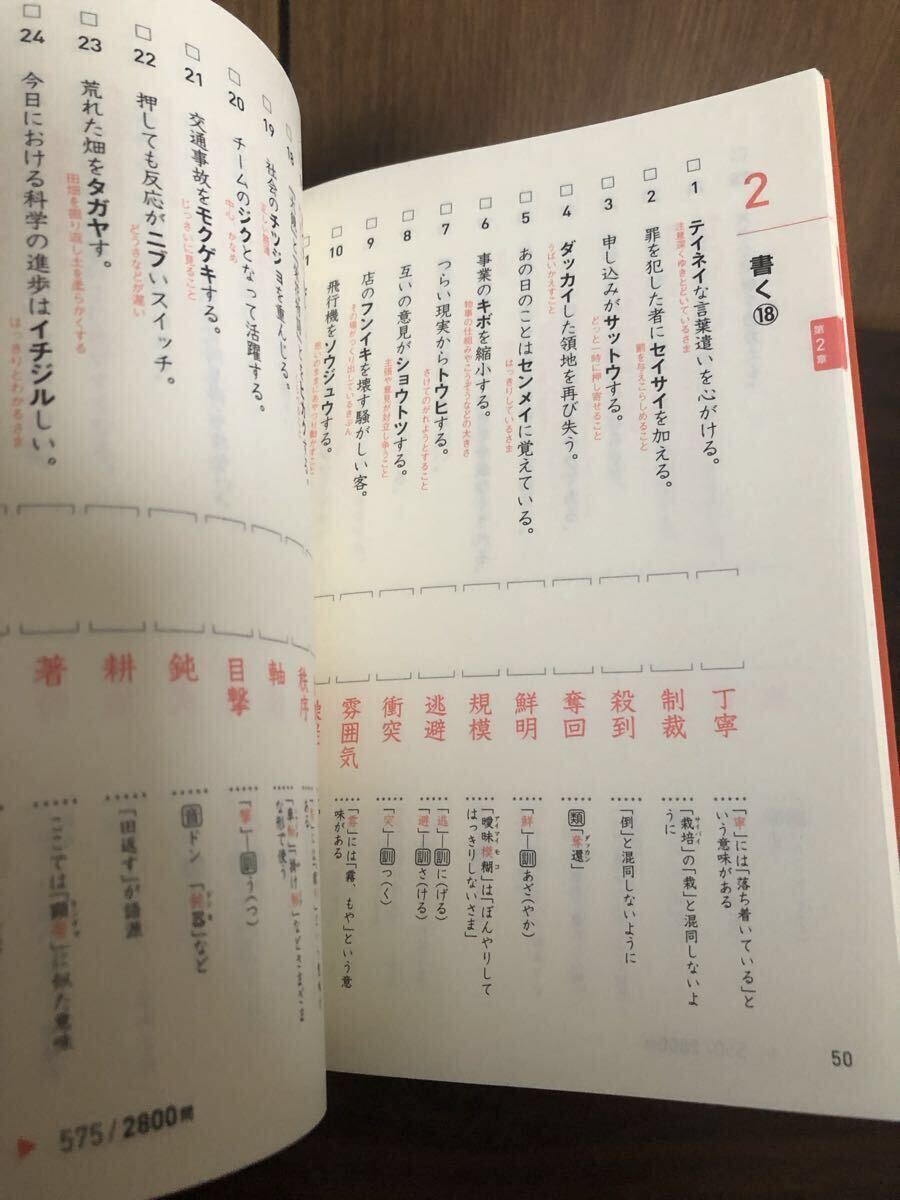 2
書く⑱
第2章
□ 1 テイネイな言葉遣いを心がける。
注意深くゆきとどいているさま
丁寧
「寧」には「落ち着いている」と
いう意味がある
□ 2 罪を犯した者にセイサイを加える。
罰を与えこらしめること
制裁
「栽培」の「栽」と混同しないよ
うに
サイバイ
□ 3 申し込みがサットウする。
どっと一時に押し寄せること
殺到
「倒」と混同しないように
□ 4 ダッカイした領地を再び失う。
うばいかえすこと
奪回
類「奪還」
ダッカン
□ 5 あの日のことはセンメイに覚えている。
はっきりしているさま
鮮明
「鮮」―訓あざ(やか)
□ 6 事業のキボを縮小する。
物事の仕組みやこうぞうなどの大きさ
規模
「曖昧模糊」は「ぼんやりして
はっきりしないさま」
アイマイモコ
□ 7 つらい現実からトウヒする。
さけてのがれようとすること
逃避
「逃」―訓に(げる)
「避」―訓さ(ける)
□ 8 互いの意見がショウトツする。
主張や意見が対立し争うこと
衝突
「突」―訓つ(く)
□ 9 店のフンイキを壊す騒がしい客。
その場がつくり出しているきぶん
雰囲気
「雰」には「霧、もや」という意
味がある
□ 10 飛行機をソウジュウする。
思いのままにあやつり動かすこと
50
□ 18
□ 19 社会のチツジョを重んじる。
秩序
□ 20 チームのジクとなって活躍する。
中心。かなめ
軸
□ 21 交通事故をモクゲキする。
じっさいに見ること
目撃
「撃」―訓う(つ)
□ 22 押しても反応がニブいスイッチ。
どうさなどが遅い
鈍
音ドン 「鈍器」など
ドンキ
□ 23 荒れた畑をタガヤす。
田畑を掘り返し土を柔らかくする
耕
「田返す」が語源
□ 24 今日における科学の進歩はイチジルしい。
はっきりとわかるさま
著
ここでは「顕著」に似た意味
ケンチョ
575/2800問